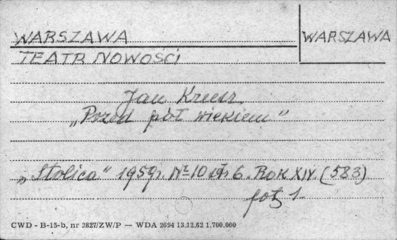 WARSZAWA WARSZAWA
TEATR NOWOŚCI
Jan Krusz
„Przed pół wiekiem"
„Stolica" 1959r. Nº 10 str. 6. Rok XIV. (583)
fot. 1.
CWD - B-15-b, nr 2827/ZW/P — WDA 2094 13.12.62 1.700.000